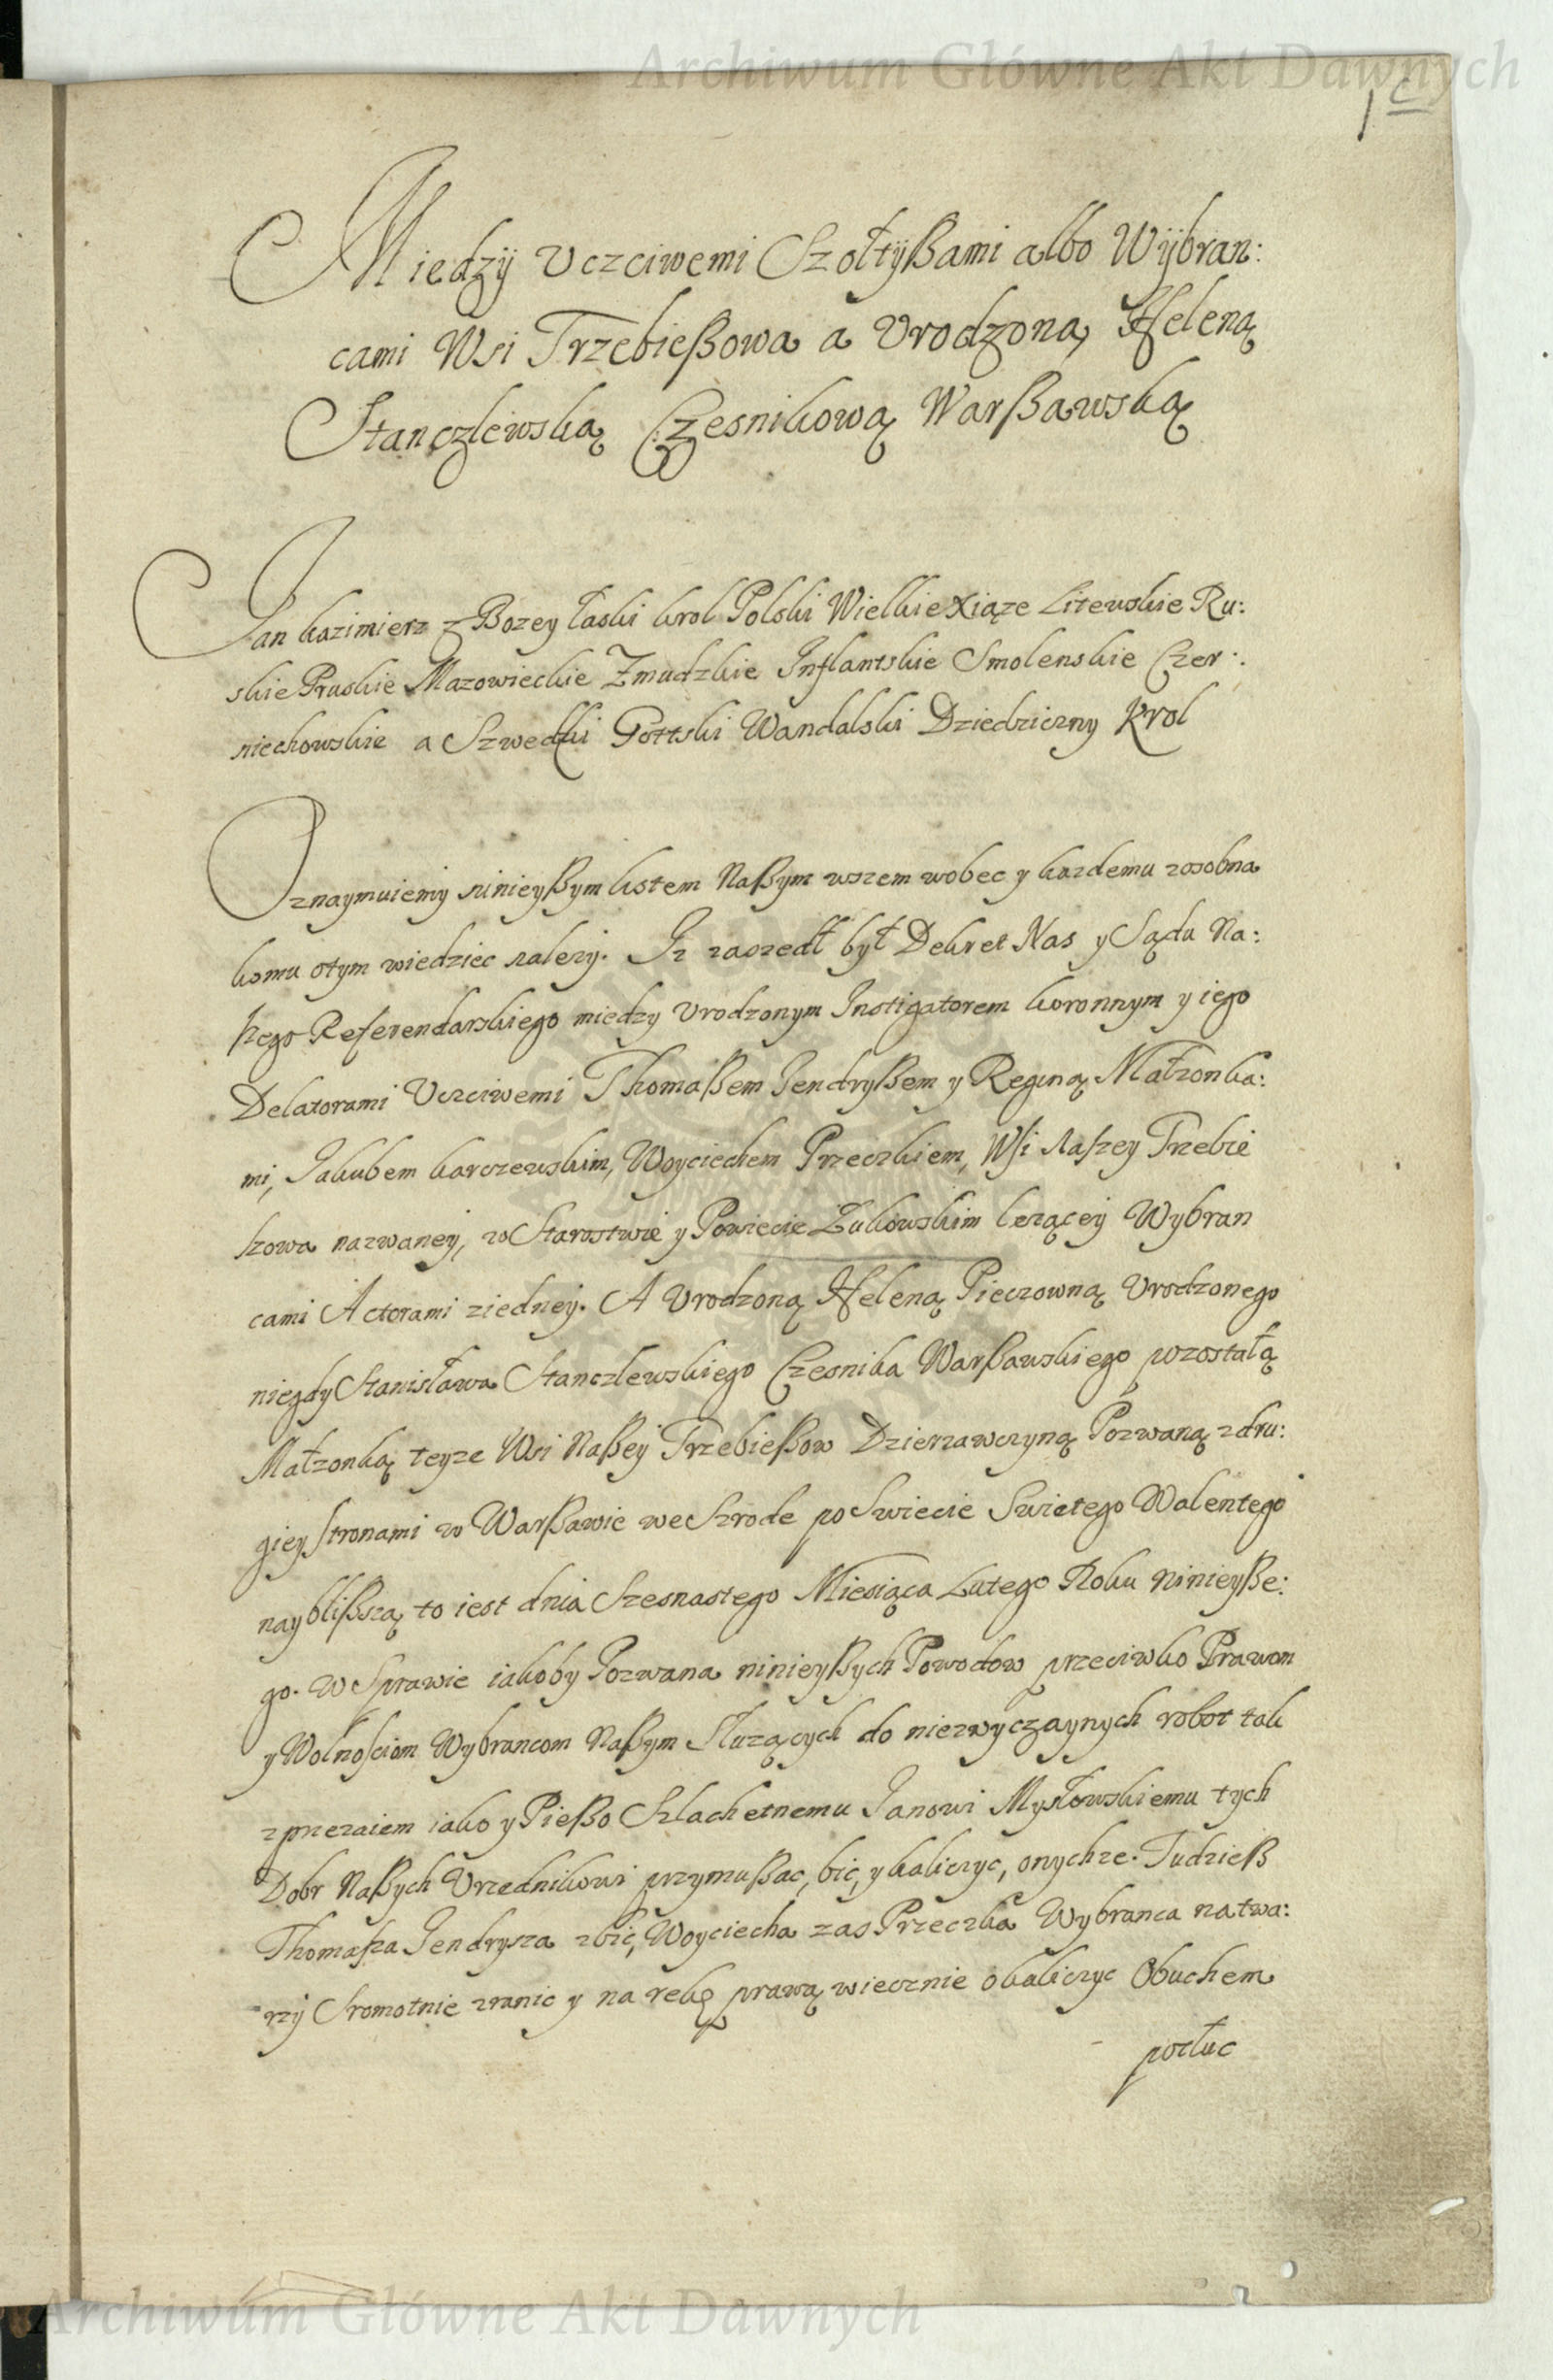 Archiwum Główne Akt Dawnych
1
Miedzÿ Vczciwemi Szołtÿßami albo Wÿbran:
cami Wsi Trzebießowa a Vrodzoną Heleną
Stanczlewską Czesnikową Warßawską
Jan kazimierz z Bozey łaski krol Polski Wielkie Xiąze Litewskie Ru:
skie Pruskie Mazowieckie Zmudzkie Inflantskie Smolenskie Czer:
niechowskie a Szwedki Gottski Wandalski Dziedziczny Krol
Oznaymuiemy ninieyßym listem Naßym wszem wobec y kazdemu zosobna
komu otym wiedziec nalezy. Iz zaszedł był Dekret Nas y Sądu Na:
szego Referendarskiego miedzy Vrodzonym Instigatorem koronnym y iego
Delatorami Vczciwemi Thomaßem Jendryßem y Reginą Małzonka:
mi, Jakubem karczewskim, Woyciechem Przeczkiem, Wsi naszey Trzebie
szowa nazwaney, w Starostwie y Powiecie Łukowskim lezącey Wybran
cami Actorami ziedney. A Vrodzoną Heleną Pieczowną Vrodzonego
niegdy Stanisława Stanczlewskiego Czesnika Warßawskiego pozostałą
Małzonką teyze Wsi Naßey Trzebießow Dzierzawczyną Pozwaną zdru:
giey Stronami w Warßawie we Szrode po Swiecie Swietego Walentego
nayblißszą to iest dnia Szesnastego Miesiąca Lutego Roku ninieyße:
go. W Sprawie iakoby Pozwana ninieyßych Powodow przeciwko Prawom
y Wolnosciom Wybrancom Naßym Sluzących do niezwyczaynych robot tak
zprzezaiem iako y Pießo Szlachetnemu Janowi Mysłowskiemu tych
Dobr Naßych Vrzednikowi przymußac, bic, y kaliczyc, onychze. Tudzieß
Thomasza Jendrysza zbic, Woyciecha zas Przeczka Wybranca na twa:
rzÿ Sromotnie zranic y na rekę prawą wiecznie okaliczyc Obuchem
potłuc
Archiwum Główne Akt Dawnych